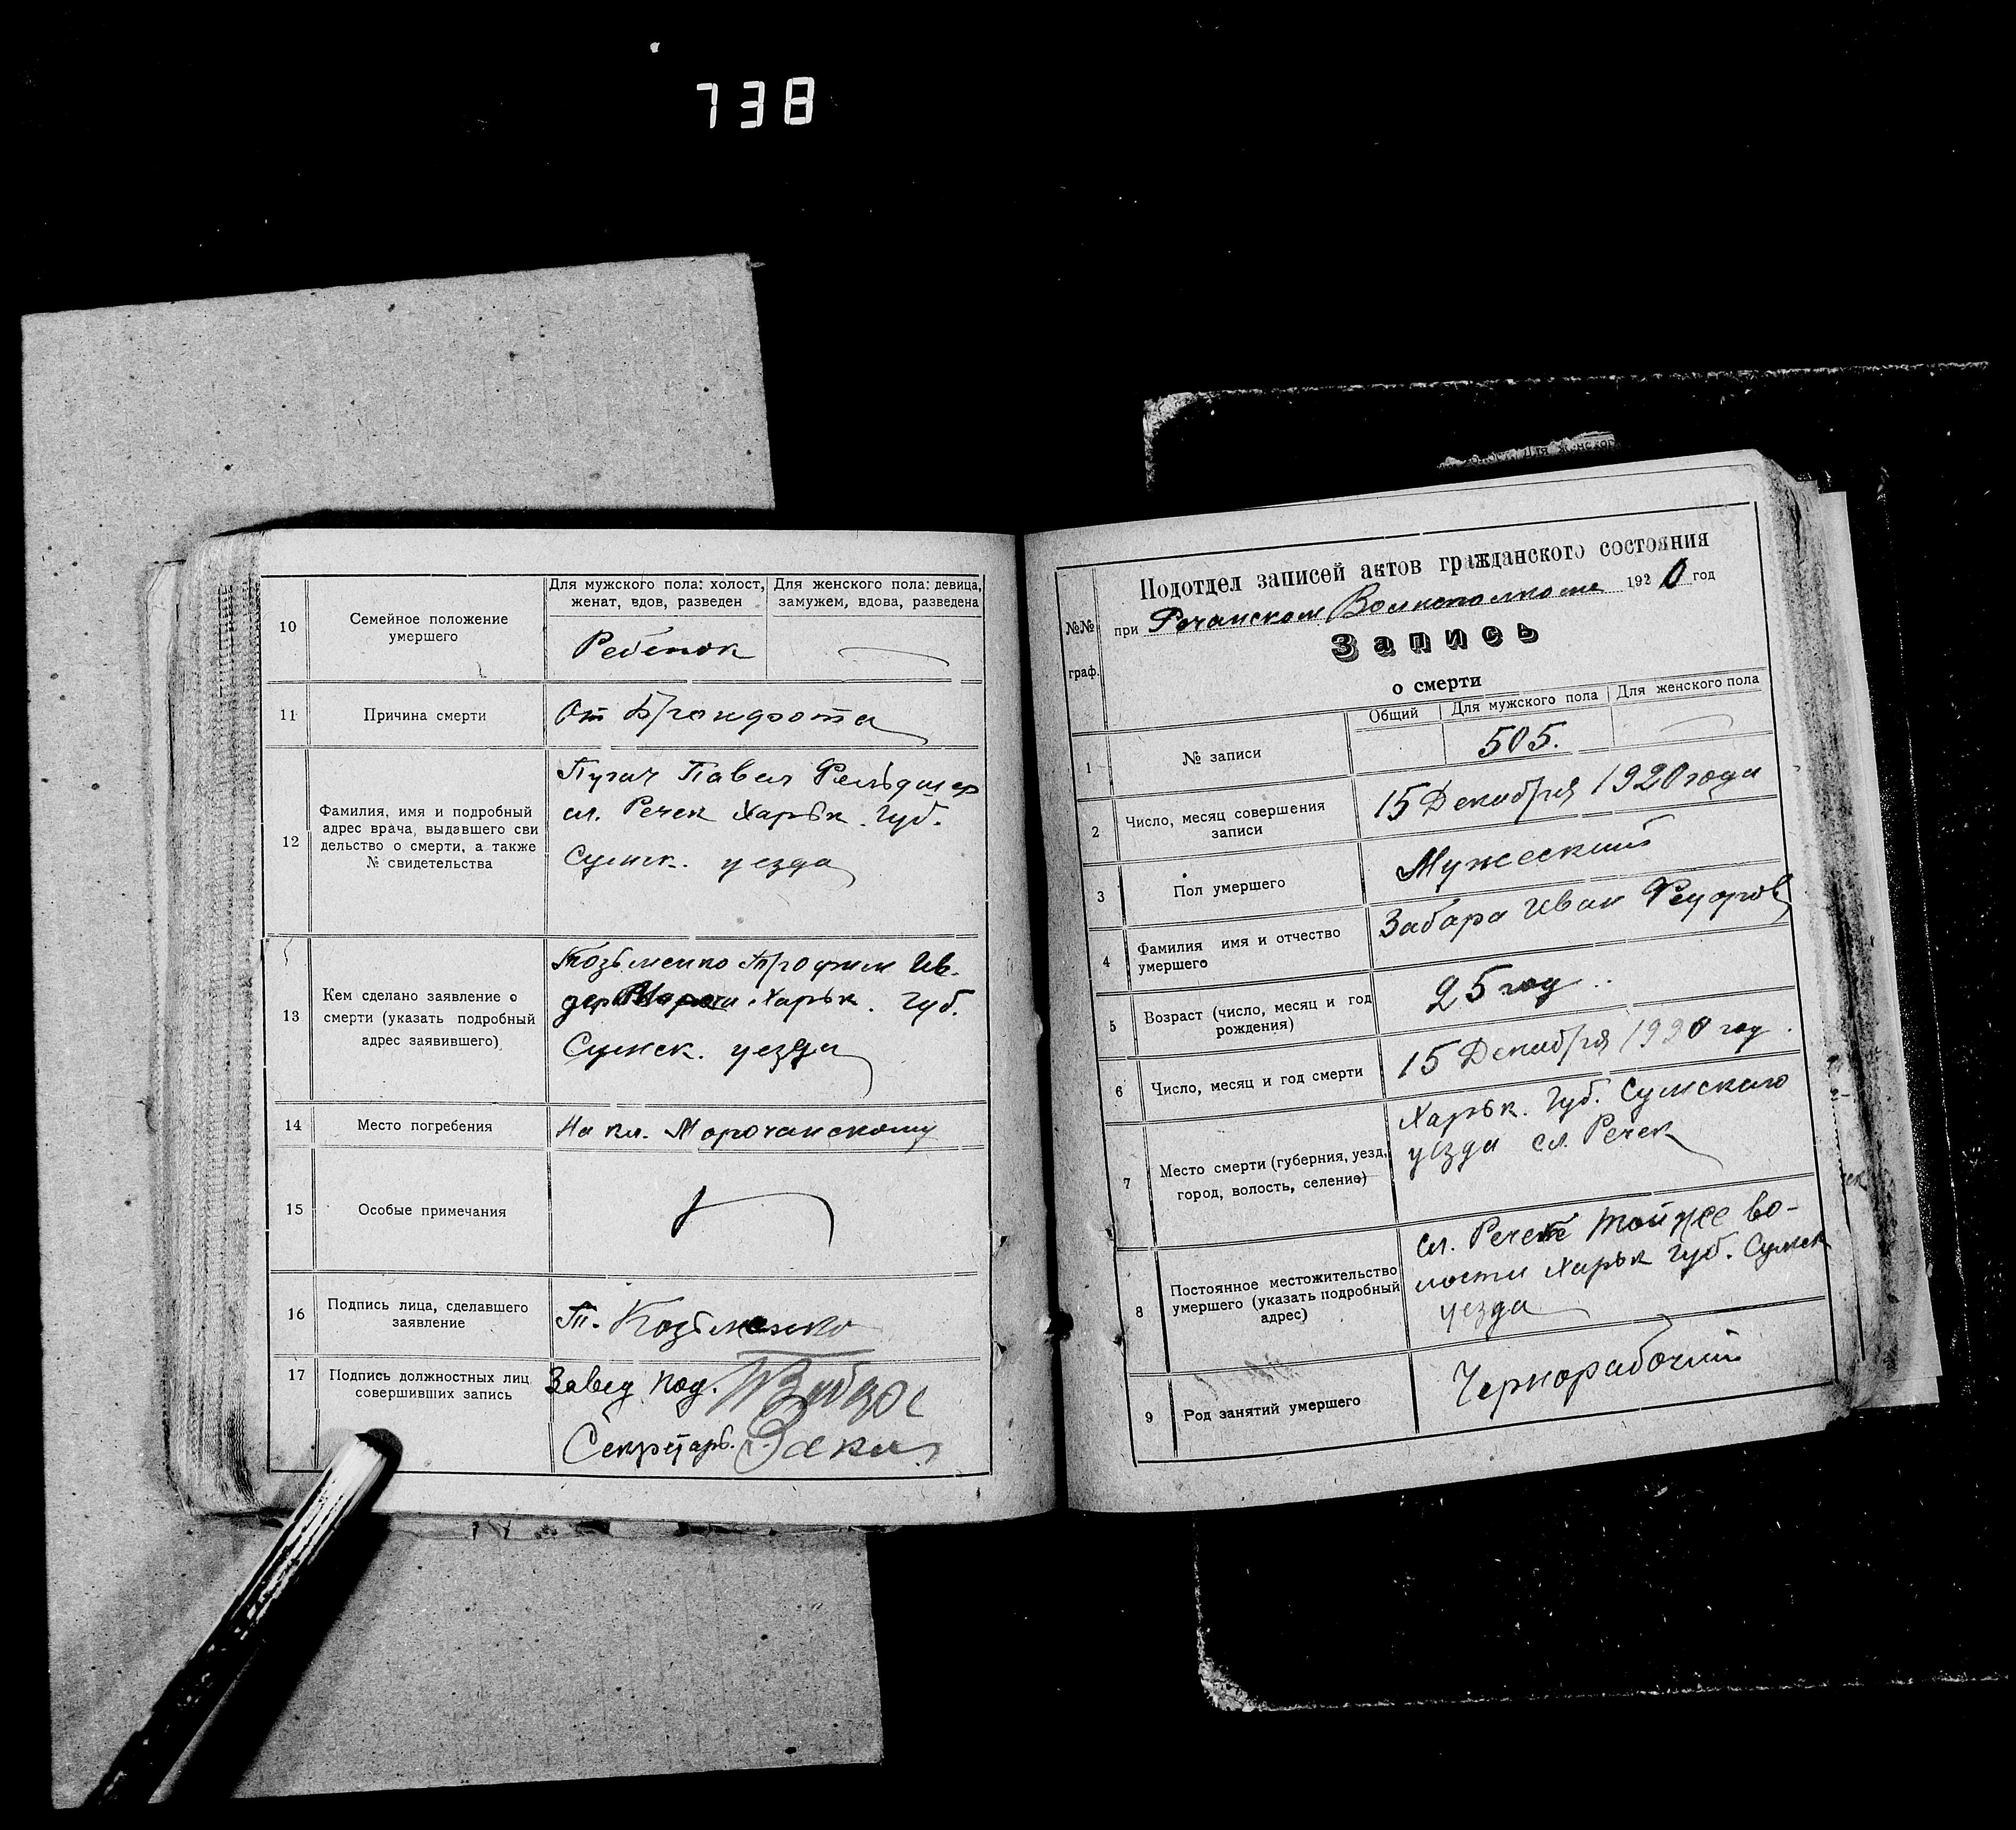 738
10
Семейное положение
умершего
Для мужского пола: холост,
женат, вдов, разведен
Для женского пола: девица,
замужем, вдова, разведена
Ребенок
11
Причина смерти
От
12
Фамилия, имя и подробный
адрес врача, выдавшего сви
дельство о смерти, а также
№ свидетельства
Пугач Павел Фельдшер
сл. Речек Харьк. Губ.
Сумск. уезда
13
Кем сделано заявление о
смерти (указать подробный
адрес заявившего)
Трофим Ив.
дер. Харьк. Губ.
Сумск. уезда
14
Место погребения
На кл. Марочанскому
15
Особые примечания
16
Подпись лица, сделавшего
заявление
Т. Козьменко
17
Подпись должностных лиц
совершивших запись
Завед под.
Секретарь.
№№
граф.
Подотдел записей актов гражданского состояния
при Речанском Волисполкоме 1920 год
Запись
о смерти
Общий
Для мужского пола
Для женского пола
1
№ записи
505.
2
Число, месяц совершения
записи
15 Декабря 1920 года
3
Пол умершего
Мужеский
4
Фамилия имя и отчество
умершего
Забара Иван Федоров
5
Возраст (число, месяц и год
рождения)
25 год
6
Число, месяц и год смерти
15 Декабря 1920 год.
7
Место смерти (губерния, уезд,
город, волость, селение)
Харьк. Губ. Сумского
уезда сл. Речек
8
Постоянное местожительство
умершего (указать подробный
адрес)
сл. Речек той же во-
лости Харьк Губ. Сумск
уезда
9
Род занятий умершего
Чернорабочий